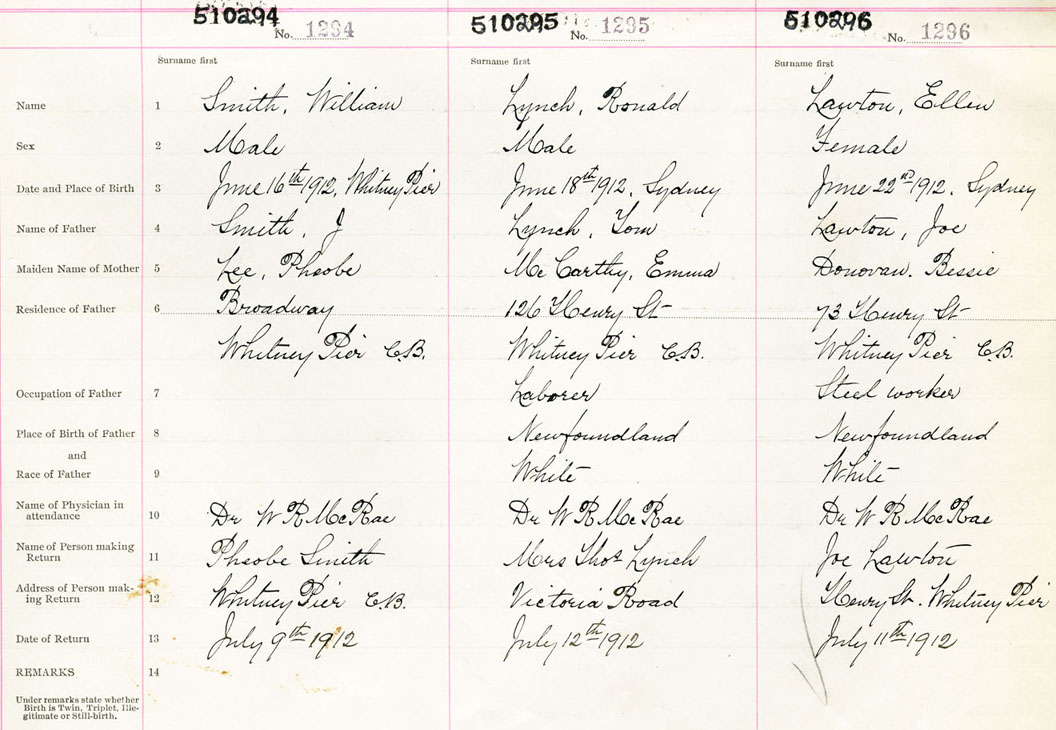 510294 510295 510296
No. 1294 No. 1295 No. 1296
Surname first Surname first Surname first
Name 1 Smith, William Lynch, Ronald Lawton, Ellen
Sex 2 Male Male Female
Date and Place of Birth 3 June 16th 1912, Whitney Pier June 18th 1912, Sydney June 22nd 1912. Sydney
Name of Father 4 Smith, J Lynch, Tom Lawton, Joe
Maiden Name of Mother 5 Lee, Phoebe McCarthy, Emma Donovan. Bessie
Residence of Father 6 Broadway 126 Henry St 73 Henry St
Whitney Pier C.B. Whitney Pier C.B. Whitney Pier C.B.
Occupation of Father 7 Laborer Steel worker
Place of Birth of Father 8 Newfoundland Newfoundland
and
Race of Father 9 White White
Name of Physician in
attendance 10 Dr W R McRae Dr W R McRae Dr W R McRae
Name of Person making
Return 11 Phoebe Smith Mrs Thos Lynch Joe Lawton
Address of Person mak-
ing Return 12 Whitney Pier C.B. Victoria Road Henry St. Whitney Pier
Date of Return 13 July 9th 1912 July 12th 1912 July 11th 1912
REMARKS 14
Under remarks state whether
Birth is Twin, Triplet, Ille-
gitimate or Still-birth.